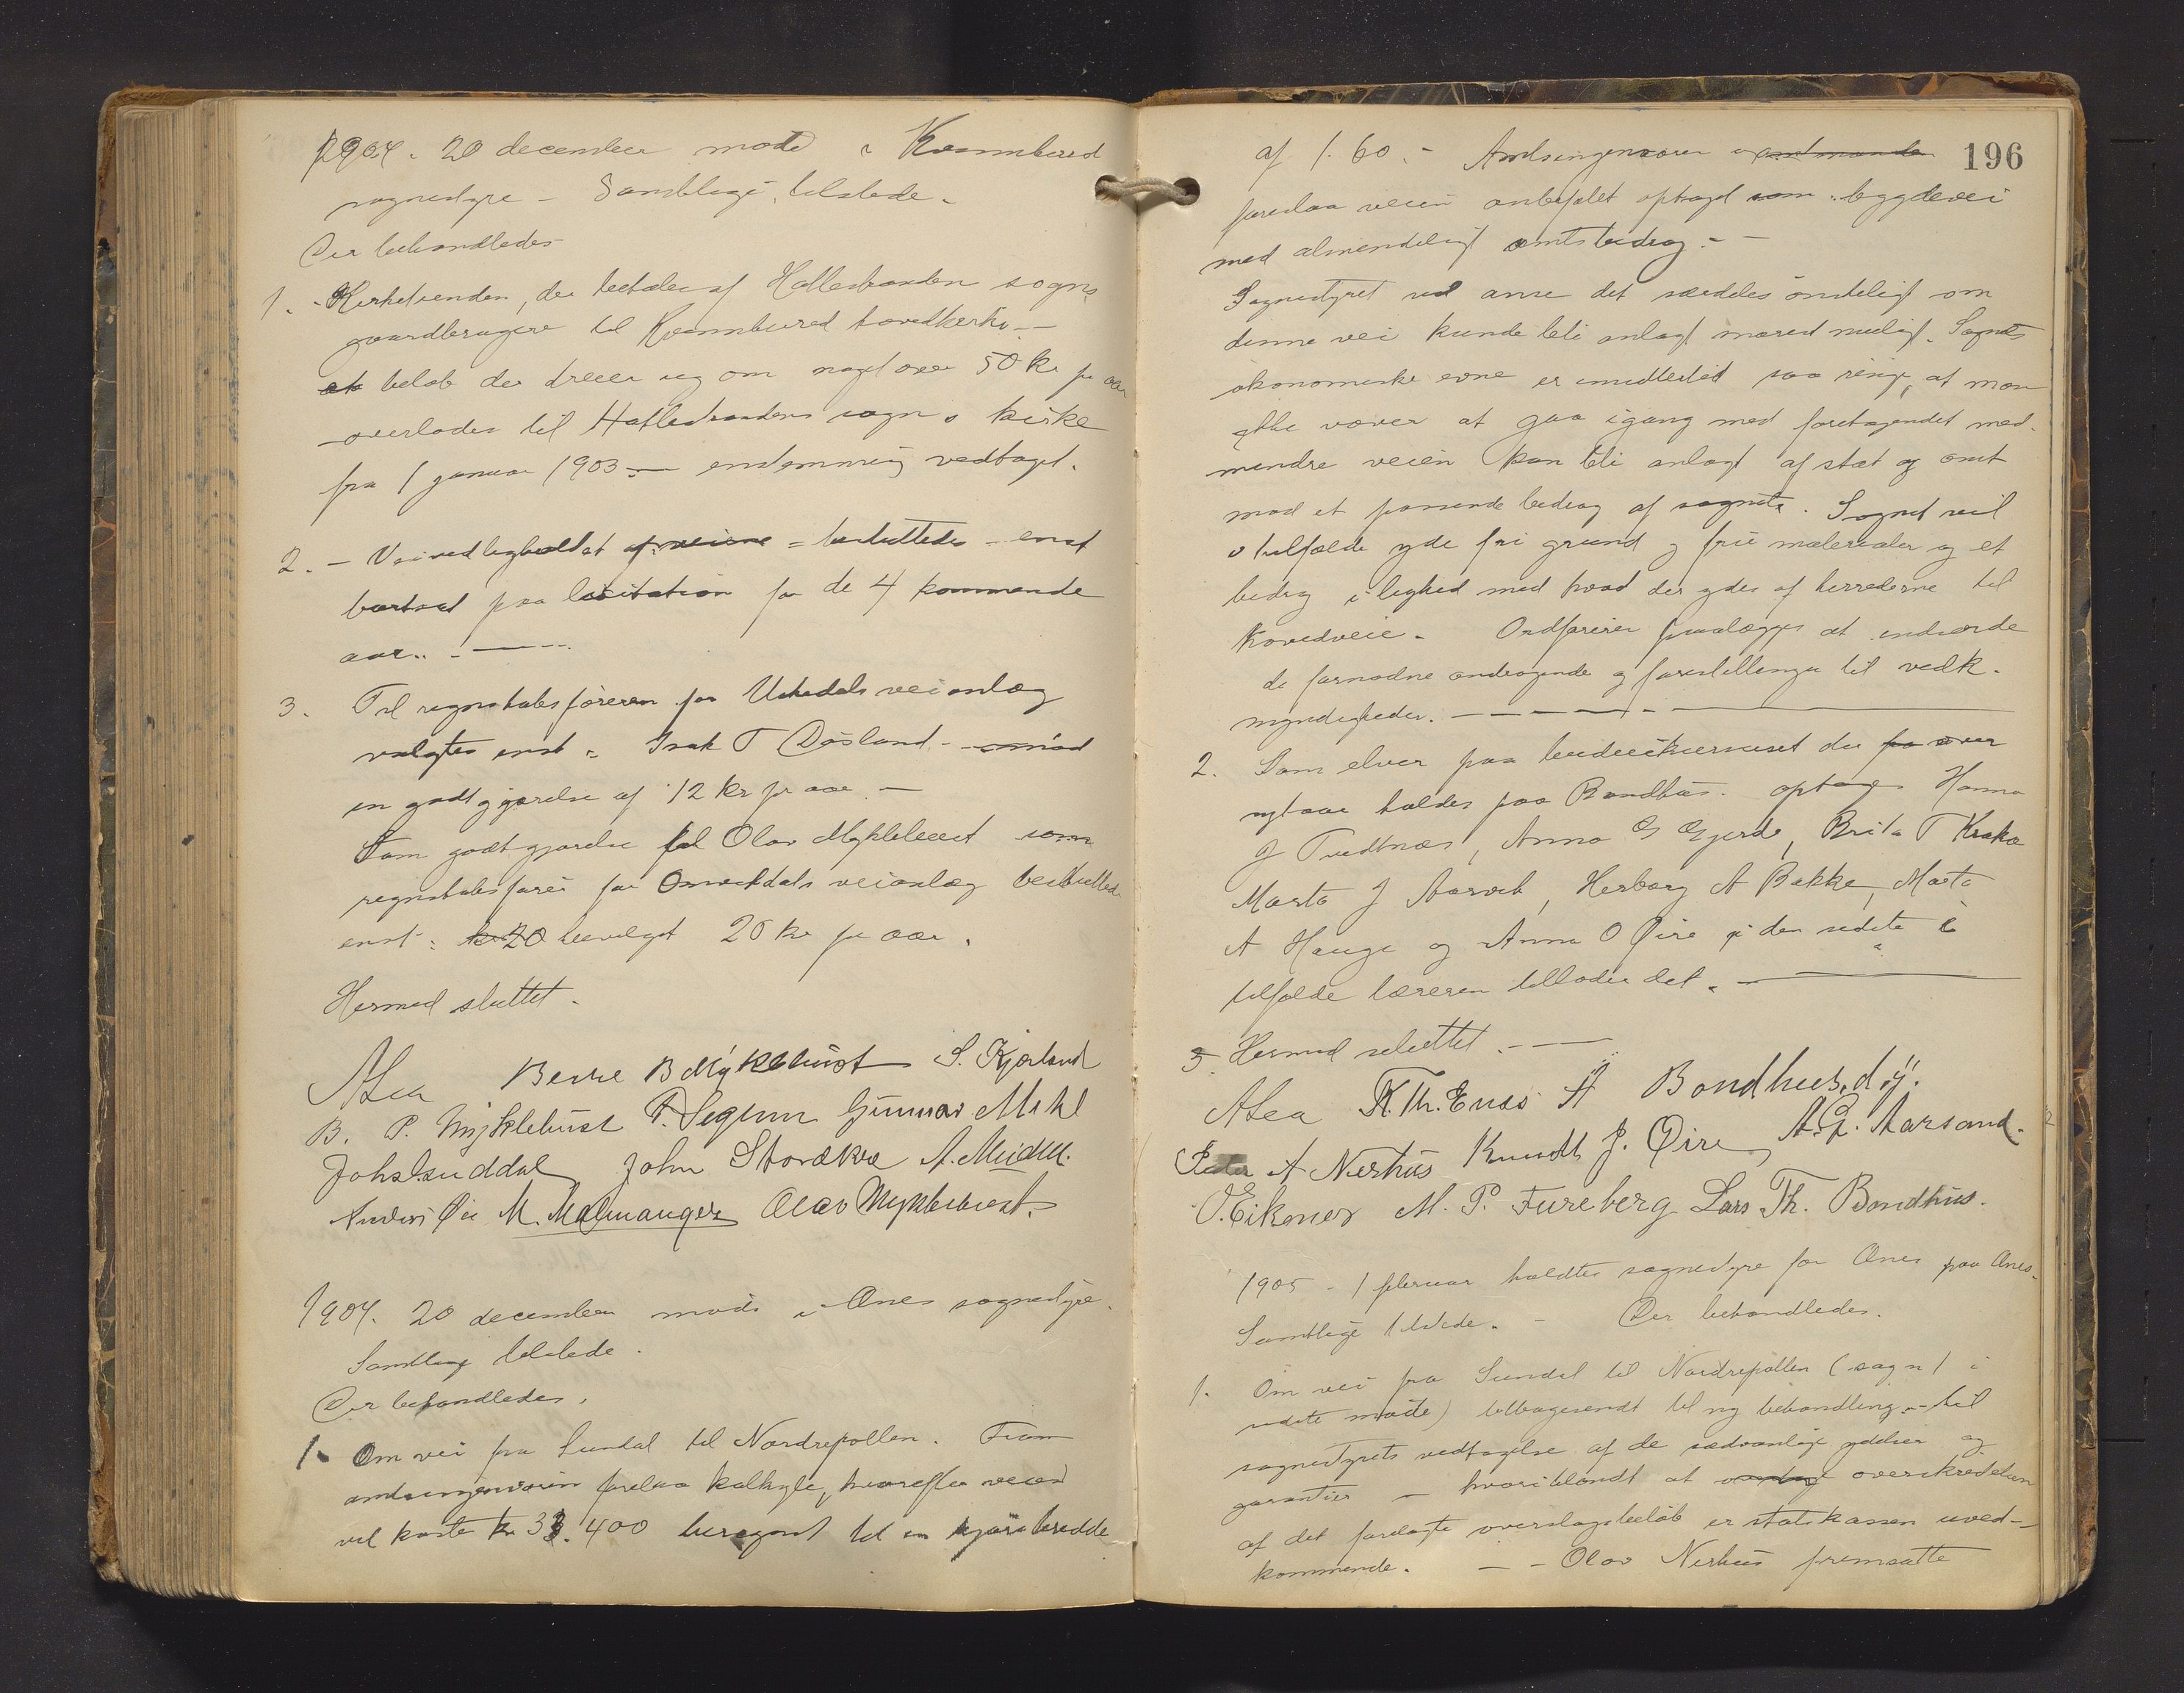 1904. 20 december möde i Kvinnhered
sognestyre - Samtlige tilstede.
Der behandledes
1. Kirketienden, der betales af Hatlestranden sogns
gaardbrugere til Kvinnhered hovedkirke
et beløb der dreier sig om noget over 50 kr pr aar
overlades til Hatlestrandens sogns kirke
fra 1 januar 1903 - enstemmig vedtaget.
2. - Veivedligholdet af veiene = besluttedes enst
bortsat paa licitation for de 4 kommende
aar..
3. Til regnskabsføreren for Uskedals veianlæg
valgtes enst: Isak T Døsland - mod
en godtgjørelse af 12 kr pr aar -
Som godtgjørelse til Olav Myklebust som
regnskabsfører for Omvikdals veianlæg besluttedes
enst: kr 20 bevilget 20 kr pr aar.
Hermed sluttet.
ALea Berre B Myklebust S. Kjærland
B. P. Myklebust T. Seglem Gunnar Mehl
Johs Guddal John Storækre A. Meidell.
Anders Øie M. Malmanger Olav Myklebust.
1904. 20 december möde i Ænes sognestyre.
Samtlige tilstede.
Der behandledes.
1. Om vei fra Sundal til Nordrepollen. Fram
amtsingeniøren forelaa kalkyle, hvorefter veien
vil koste kr 33.400 beregnet til en kjørebredde
196
af 1.60. - Amtsingeniøren og amtmanden
foreslaa veien anbefalet optaget som bygdevei
med almindeligt amtsbidrag. -
Sognestyret vil anse det særdeles ønskeligt om
denne vei kunde bli anlagt snarest muligt. Sognets
økonomiske evne er imidlertid saa ringe, at man
ikke vover at gaa igang med foretagendet med-
mindre veien kan bli anlagt af stat og amt
mod et passende bidrag af sognet. Sognet vil
i tilfælde yde fri grund og frie materialer og et
bidrag i lighed med hvad der ydes af herrederne til
hovedveie. Ordføreren paalægges at indsende
de fornødne andragende og forestillinger til vedk.
myndigheder.
2. Som elever paa husflidskurset der fra over
nytaar holdes paa Bondhus. optages Hanna
J Tvedtnæs, Anna G Gjerde, Brita T Kraka
Marta J Aarvik, Herborg A Bakke, Marta
A Hauge og Anna O Øire, den sidste i
tilfælde læreren tillader det.
3. Hermed sluttet.
ALea K. Th. Enæs A Bondhus, d.y.
Peder A Nerhus Knudt J. Øire, A. G. Aarsand.
O. Eiknes M. P. Fureberg Lars Th. Bondhus.
1905 - 1 februar holdtes sognestyre for Ænes paa Ænes.
Samtlige tilstede. - Der behandledes.
1. Om vei fra Sundal til Nordrepollen (sag n 1 i
sidste møde) tilbagesendt til ny behandling - til
sognestyrets vedtagelse af de sædvanlige ydelser og
garantier - hvoriblandt at overskridelsen
af det forelagte overslagsbeløb er statskassen uved-
kommende. - - Olav Nerhus fremsatte